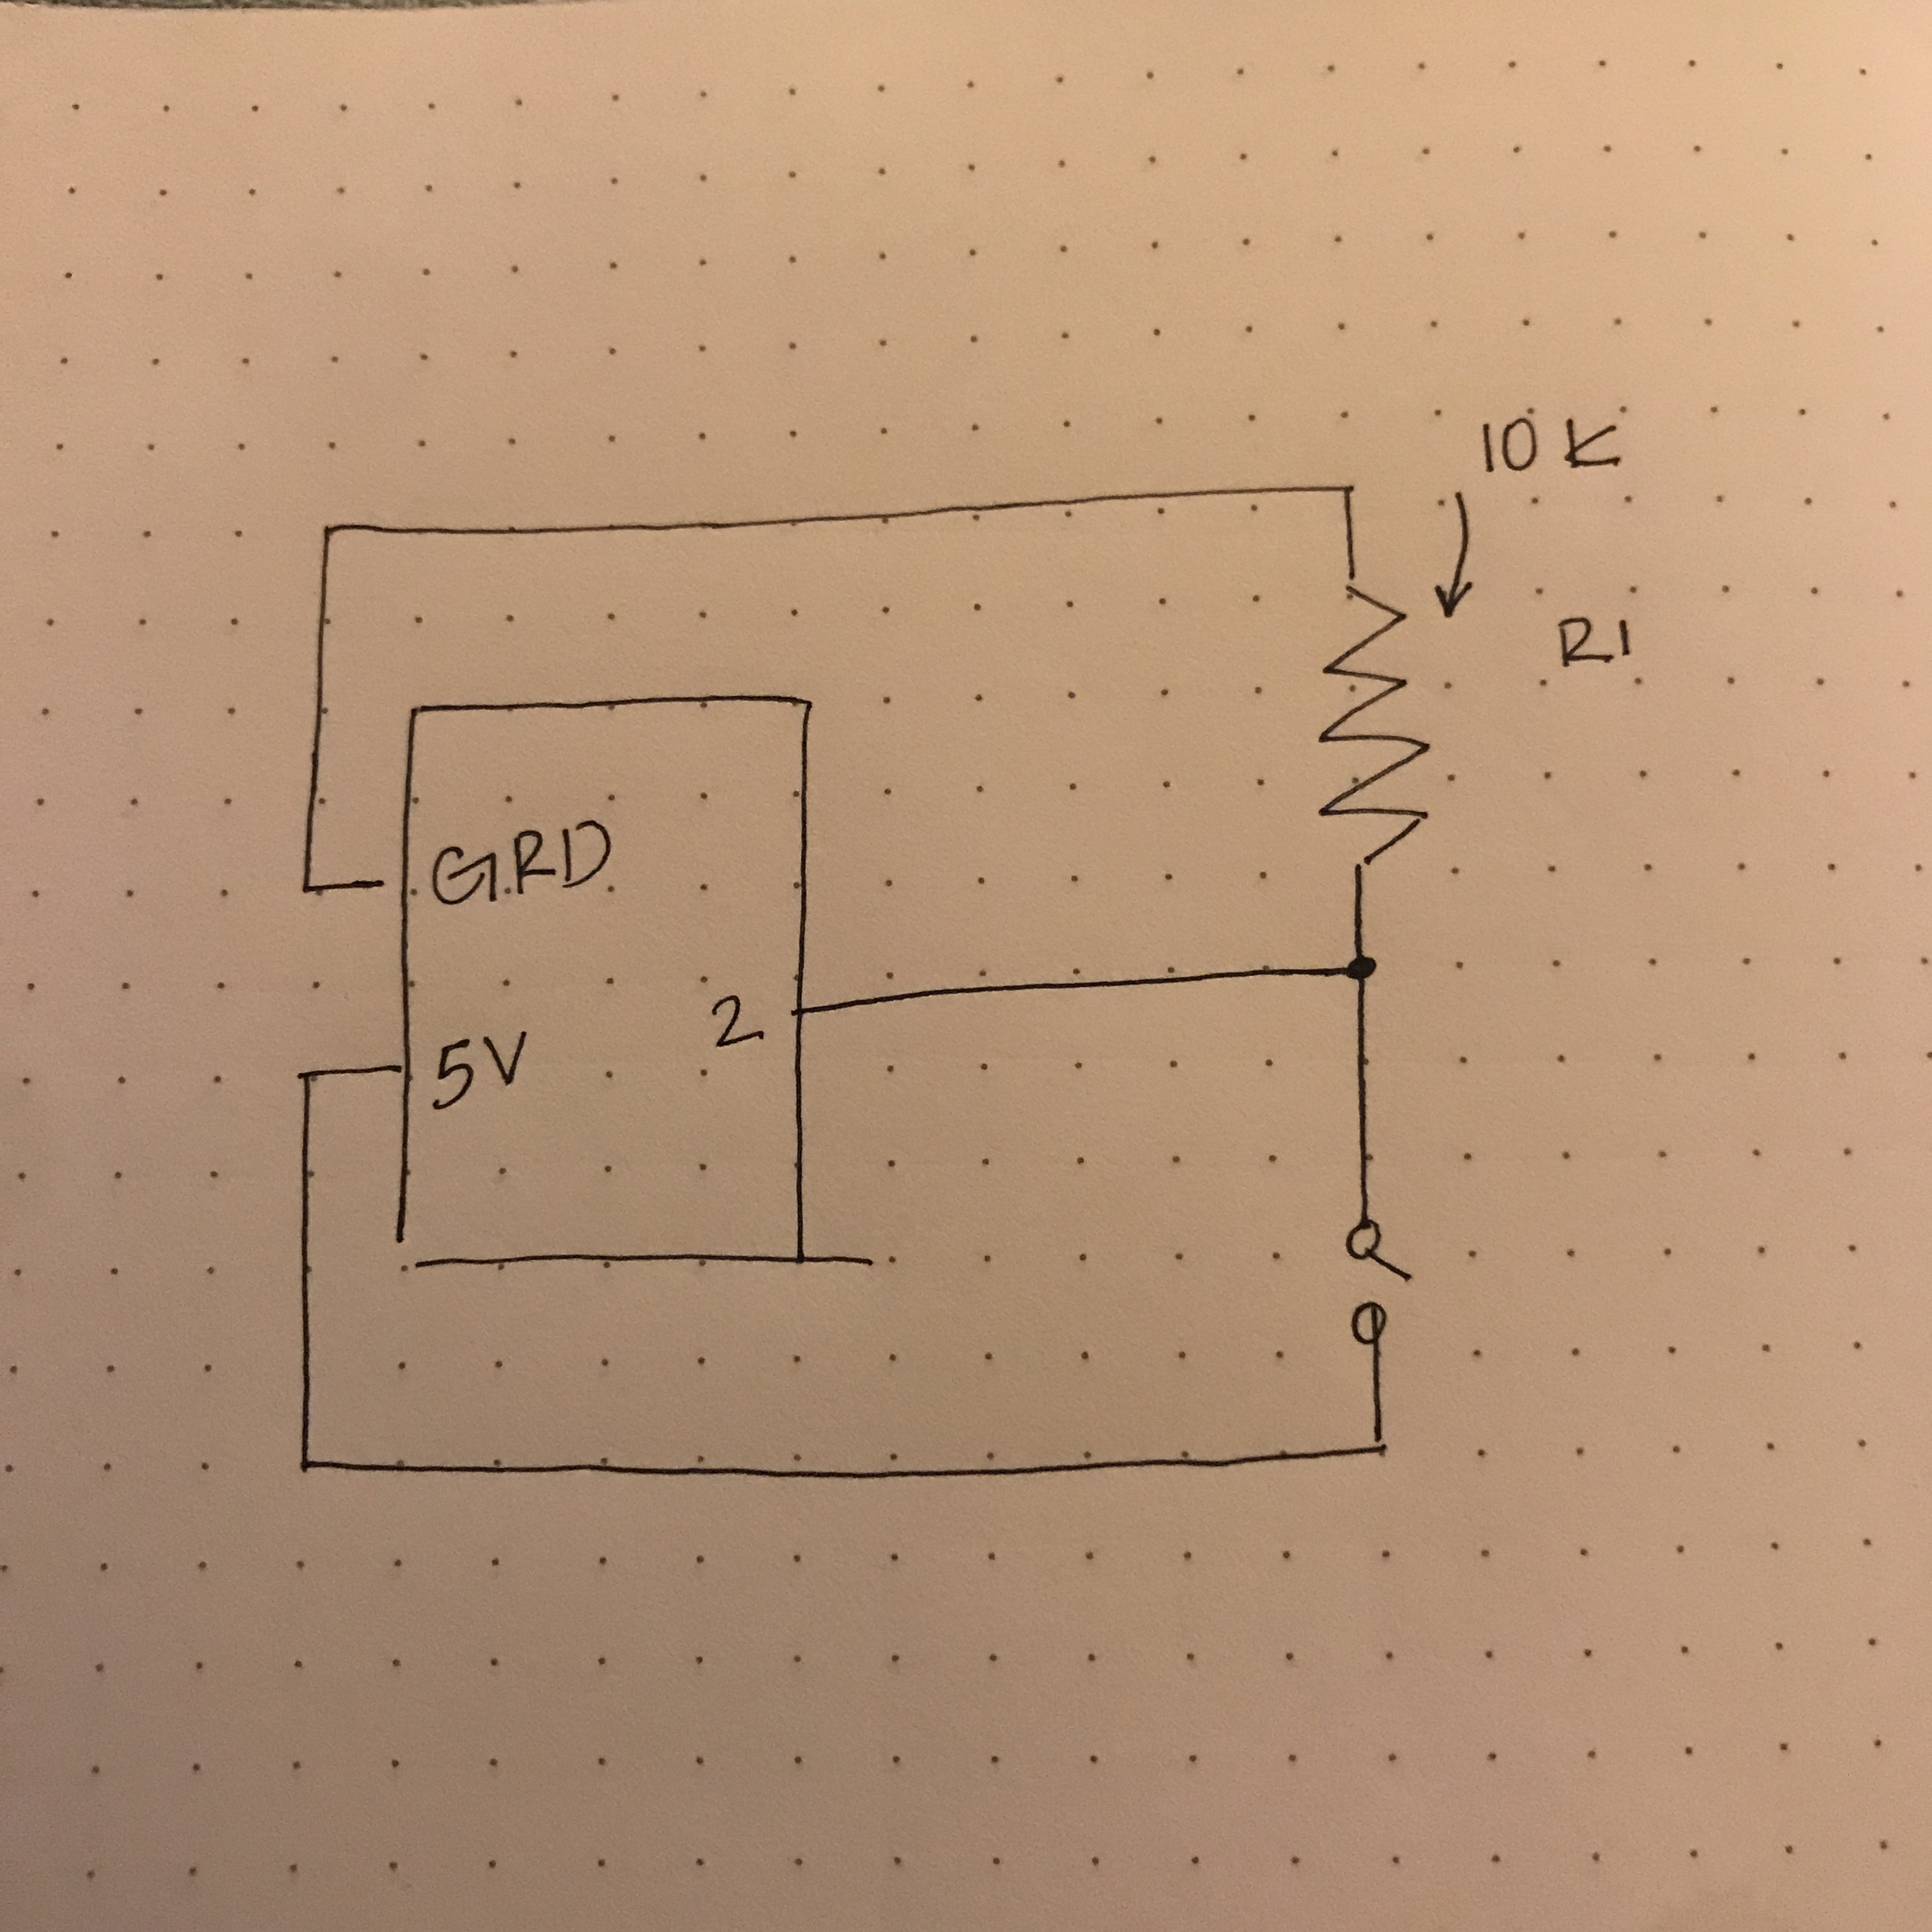 10 K
R1
GRD
2
5V